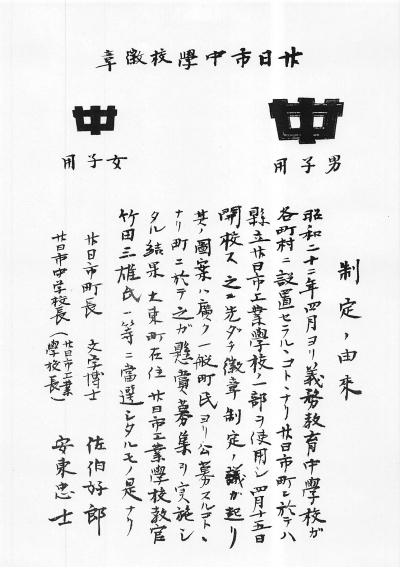 廿日市中學校徽章
男子用
女子用
制定ノ由來
昭和二十二年四月ヨリ義務教育中學校ガ
各町村ニ設置セラルルコトヽナリ廿日市町ニ於テハ
縣立廿日市工業學校ノ一部ヲ使用シ四月十五日
開校ス之ニ先ダチ徽章制定ノ議ガ起リ
其ノ圖案ハ廣ク一般町民ヨリ公募スルコトヽ
ナリ町ニ於テ之ガ懸賞募集ヲ実施シ
タル結果大東町在住廿日市工業學校教官
竹田三雄氏一等ニ當選シタルモノ是ナリ
廿日市町長 文学博士 佐伯好郎
廿日市中学校長(廿日市工業學校長) 安東忠士